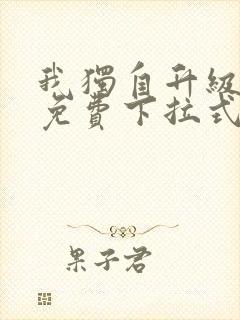 我獨自升級
免費下拉式
果子君